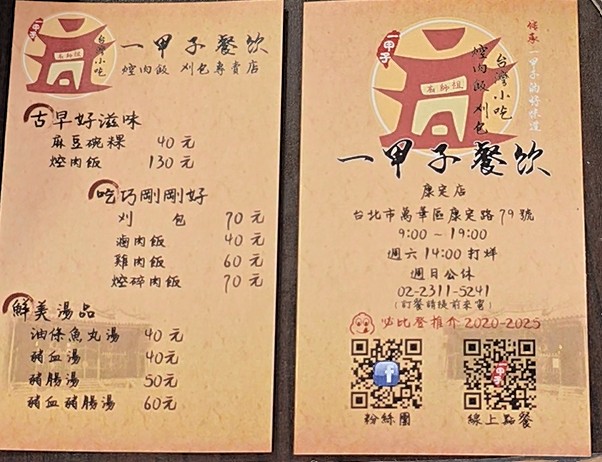 一甲子
台灣小吃
高師祖
一甲子餐飲
焢肉飯 刈包專賣店
古早好滋味
麻豆碗粿 40元
焢肉飯 130元
吃巧剛剛好
刈包 70元
滷肉飯 40元
雞肉飯 60元
焢碎肉飯 70元
鮮美湯品
油條魚丸湯 40元
豬血湯 40元
豬腸湯 50元
豬血豬腸湯 60元
一甲子
焢肉飯 刈包
台灣小吃
傳承一甲子的好味道
一甲子餐飲
康定店
台北市萬華區康定路79號
9:00~19:00
週六14:00打烊
週日公休
02-2311-5241
(訂餐請提前來電)
必比登推介 2020-2025
一甲子
粉絲團
線上點餐